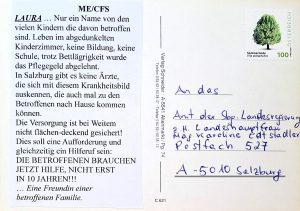 ME/CFS
LAURA ... Nur ein Name von den
vielen Kindern die davon betroffen
sind. Leben im abgedunkelten
Kinderzimmer, keine Bildung, keine
Schule, trotz Bettlägrigkeit wurde
das Pflegegeld abgelehnt.
In Salzburg gibt es keine Ärzte,
die sich mit diesem Krankheitsbild
auskennen, die auch mal zu den
Betroffenen nach Hause kommen
können.
Die Versorgung ist bei Weitem
nicht flächen-deckend gesichert!
Dies soll eine Aufforderung und
gleichzeitig ein Hilferuf sein:
DIE BETROFFENEN BRAUCHEN
JETZT HILFE, NICHT ERST
IN 10 JAHREN!!!
... Eine Freundin einer
betroffenen Familie.
ÖSTERREICH
100
An das
Amt der Sbg. Landesregierung
z.H. Landeshauptfrau
Mag. Karoline Edtstadler
Postfach 527
A-5010 Salzburg